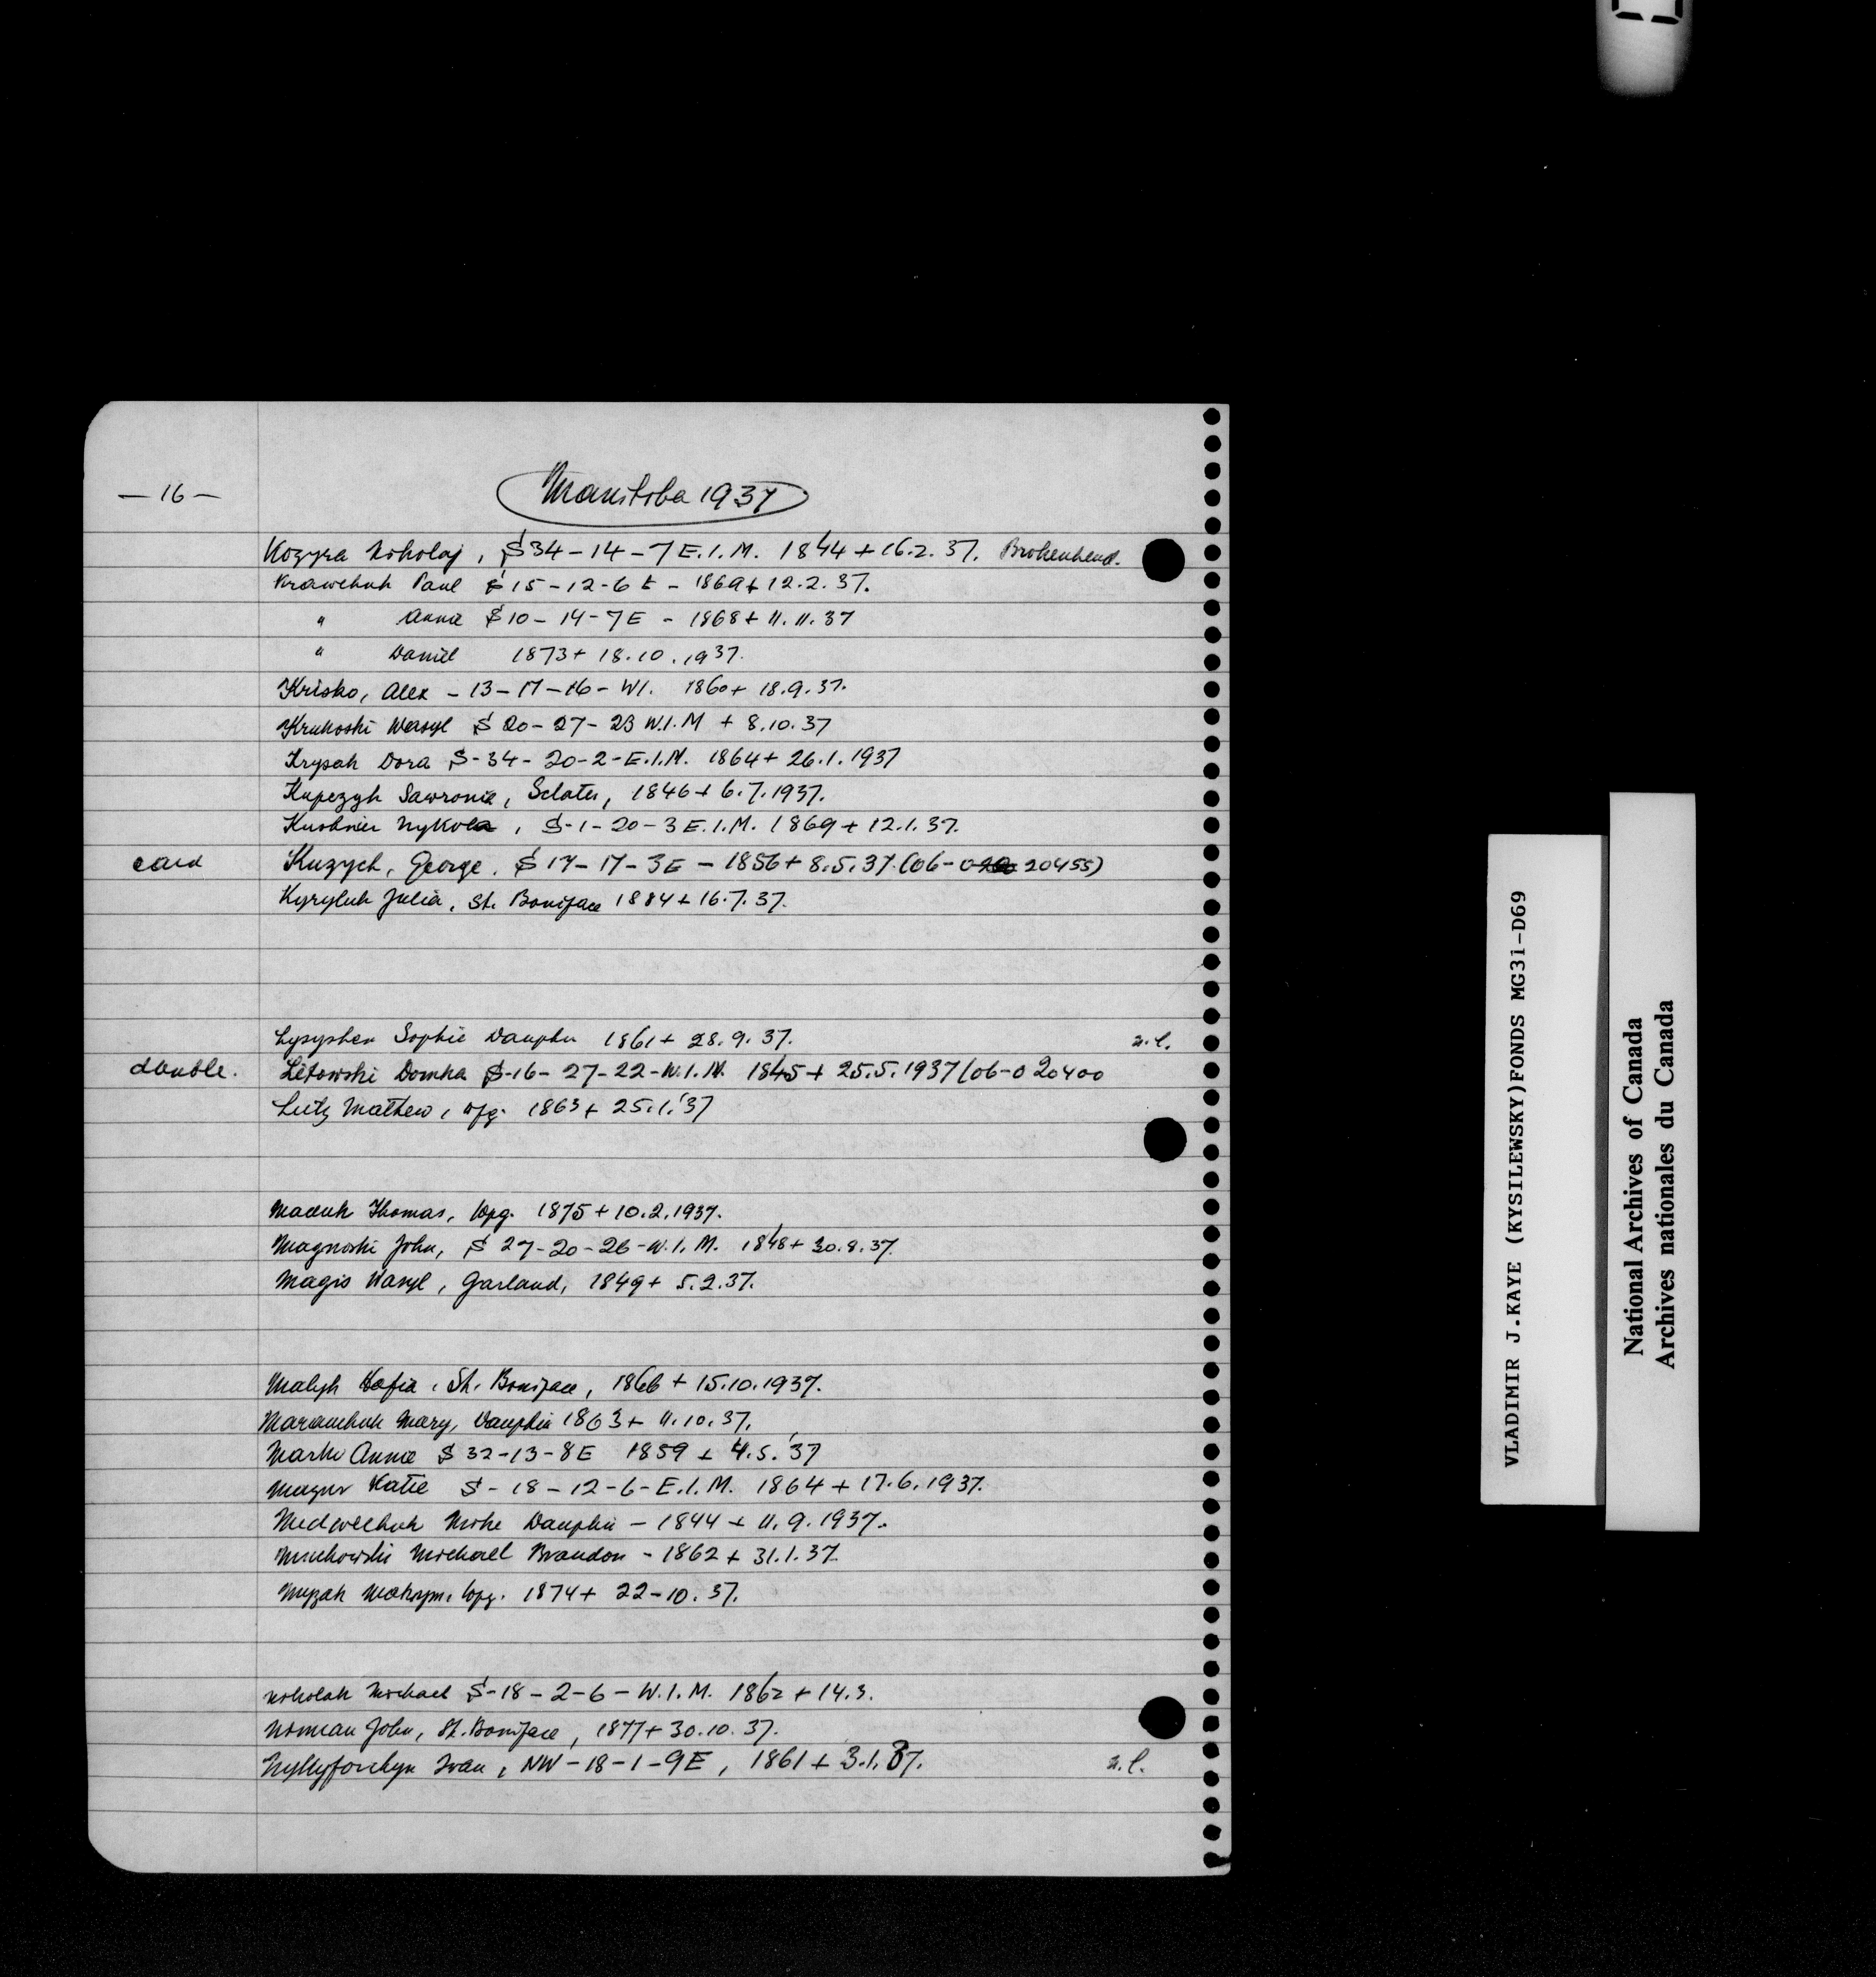 — 16 —
Manitoba 1937
Kozyra Nokolaj, S 34-14-7 E.I.M. 1844 + 16.2.37. Brokenhead.
Krawchuk Paul S 15-12-6 E - 1869 + 12.2.37.
" Anna S 10-14-7E - 1868 + 11.11.37
" Daniel 1873 + 18.10.1937.
Krisko, Alex - 13-17-16-W1. 1860 + 18.9.37.
Krukoski Wasyl S 20-27-23 W.I.M + 8.10.37
Krysak Dora S-34-20-2-E.I.M. 1864 + 26.1.1937
Kupczyk Sawronia, Sclater, 1846 + 6.7.1937.
Kushnier Nykola, S-1-20-3 E.I.M. 1869 + 12.1.37.
card Kuzych, George. S 17-17-3E - 1856 + 8.5.37. (06-0 20455)
Kyryluk Julia, St. Boniface 1884 + 16.7.37.
Lysyshen Sophie Dauphin 1861 + 28.9.37. n.l.
double. Litowski Domka S-16-27-22-W.I.M. 1845 + 25.5.1937 (06-0 20400
Lutz Mathew, Wpg. 1863 + 25.1.'37
Maceuk Thomas, Wpg. 1875 + 10.2.1937.
Magnoski John, S 27-20-26-W.I.M. 1848 + 30.8.37.
Magis Wasyl, Garland, 1849 + 5.2.37.
Malyk Sofia, St. Boniface, 1866 + 15.10.1937.
Maramchuk Mary, Dauphin 1863 + 11.10.37.
Marko Annie S 32-13-8E 1859 + 4.5.'37
Mazur Katie S-18-12-6-E.I.M. 1864 + 17.6.1937.
Medwechuk Mike Dauphin - 1844 + 11.9.1937.
Muchowski Michael Brandon - 1862 + 31.1.37.
Myzak Maksym, Wpg. 1874 + 22-10.37.
Nokolak Michael S-18-2-6-W.I.M. 1862 + 14.3.
Noman John, St. Boniface, 1877 + 30.10.37.
Nykyforchyn Ivan, NW-18-1-9E, 1861 + 3.1.37. n.l.
VLADIMIR J.KAYE (KYSILEWSKY)FONDS MG31-D69
National Archives of Canada
Archives nationales du Canada